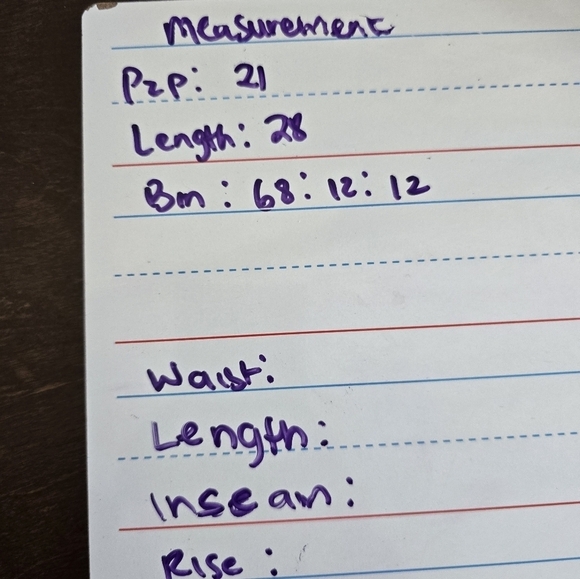 Measurement
P2P: 21
Length: 28
Bm: 68: 12: 12
Waist:
Length:
Inseam:
Rise: